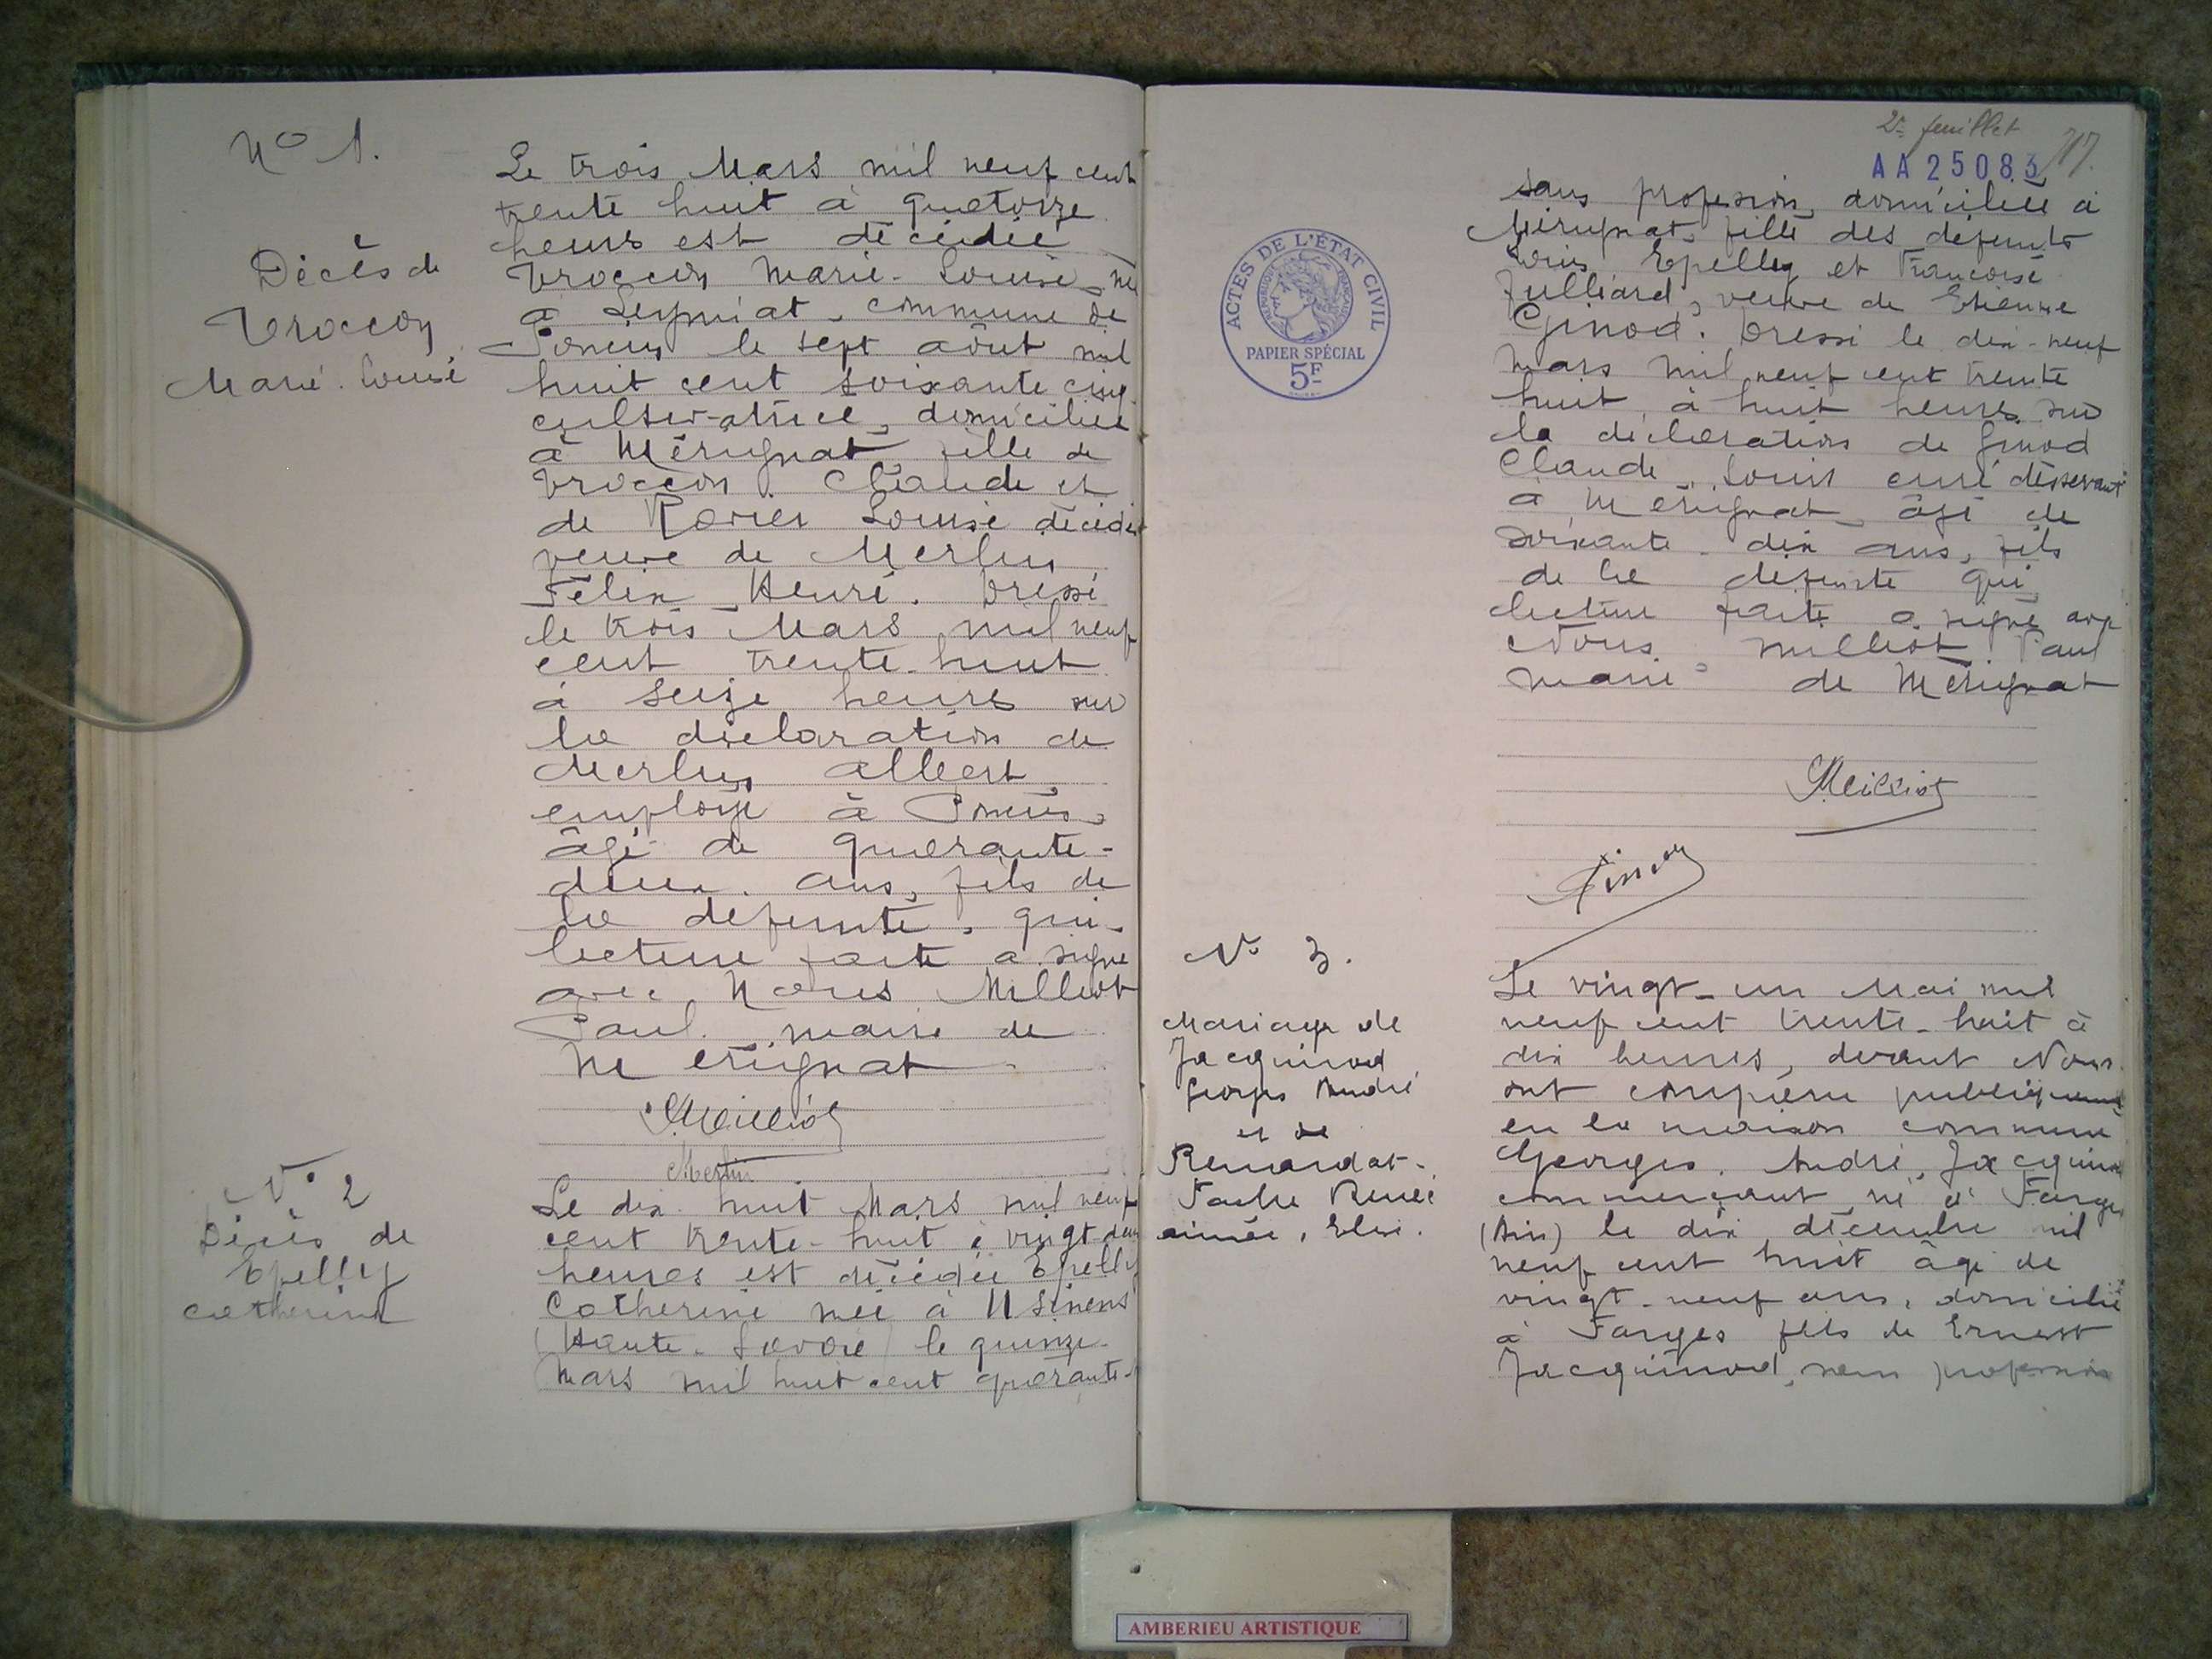 N° 1.
Décès de
Troccon
Marie-Louise
Le trois Mars mil neuf cent
trente huit à quatorze
heures est décédée
Troccon Marie-Louise, née
à Leymiat, commune de
Poncin le sept août mil
huit cent soixante cinq
cultivatrice, domiciliée
à Mérignat fille de
Troccon Claude et
de Louise décédés
veuve de Merlin
Félix Henri. Dressé
le trois Mars mil neuf
cent trente-huit
à seize heures sur
la déclaration de
Merlin Albert
employé à Poncin,
âgé de quarante-
deux ans, fils de
la defunte, qui
lecture faite a signé
avec Nous Milliot
Paul maire de
Mérignat
Milliot
Merlin
N° 2
Décès de
Epelly
Catherine
Le dix huit Mars mil neuf
cent trente-huit à vingt deux
heures est décédée Epelly
Catherine née à Usinens
(Haute-Savoie) le quinze
Mars mil huit cent quarante-
2e feuillet
AA25083
ACTES DE L'ÉTAT CIVIL
RÉPUBLIQUE FRANÇAISE
PAPIER SPÉCIAL
5F
sans profession, domiciliée à
Mérignat, fille des defunts
Louis Epelly et Francoise
Julliard, veuve de Etienne
Ginod. Dressé le dix-neuf
Mars mil neuf cent trente
huit, à huit heures sur
la déclaration de Ginod
Claude Louis curé desservant
à Mérignat, âgé de
soixante-dix ans, fils
de la defunte qui
lecture faite a signé avec
Nous Milliot Paul
maire de Mérignat
Milliot
Ginod
N° 3.
Mariage de
Jacquinod
Georges André
et de
Renardat-
Fache Renée
aimée, Elise.
Le vingt-un Mai mil
neuf cent trente-huit à
dix heures, devant Nous
ont comparu publiquement
en la maison commune
Georges André, Jacquinod
commerçant né à Farges
(Ain) le dix décembre mil
neuf cent huit âgé de
vingt-neuf ans, domicilié
à Farges fils de Ernest
Jacquinod, sans profession
AMBERIEU ARTISTIQUE